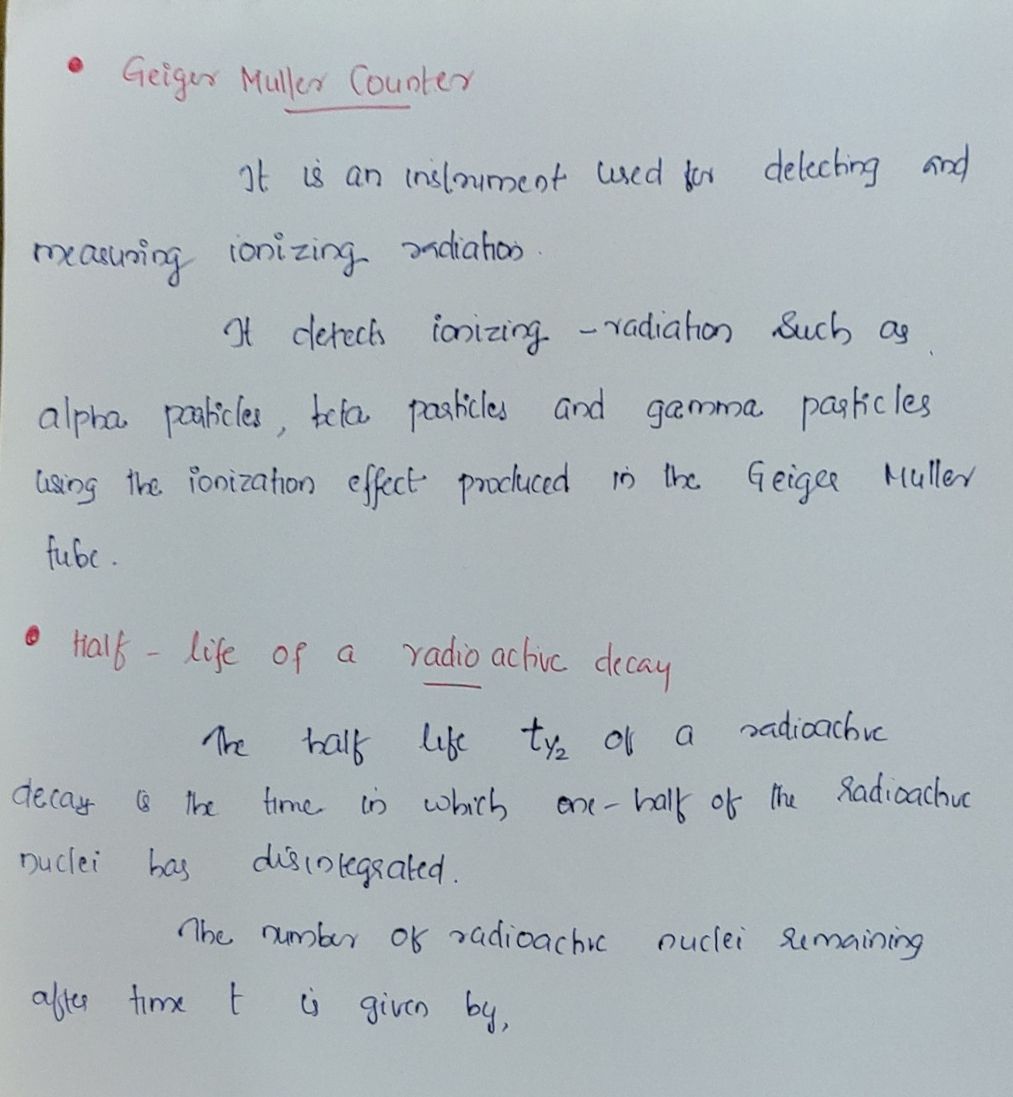 • Geiger Muller Counter
It is an instrument used for detecting and
measuring ionizing radiation.
It detects ionizing -radiation such as
alpha particles, beta particles and gamma particles
using the ionization effect produced in the Geiger Muller
tube.
• Half - life of a radio active decay
The half life t1/2 of a radioactive
decay is the time in which one-half of the radioactive
nuclei has disintegrated.
The number of radioactive nuclei remaining
after time t is given by,